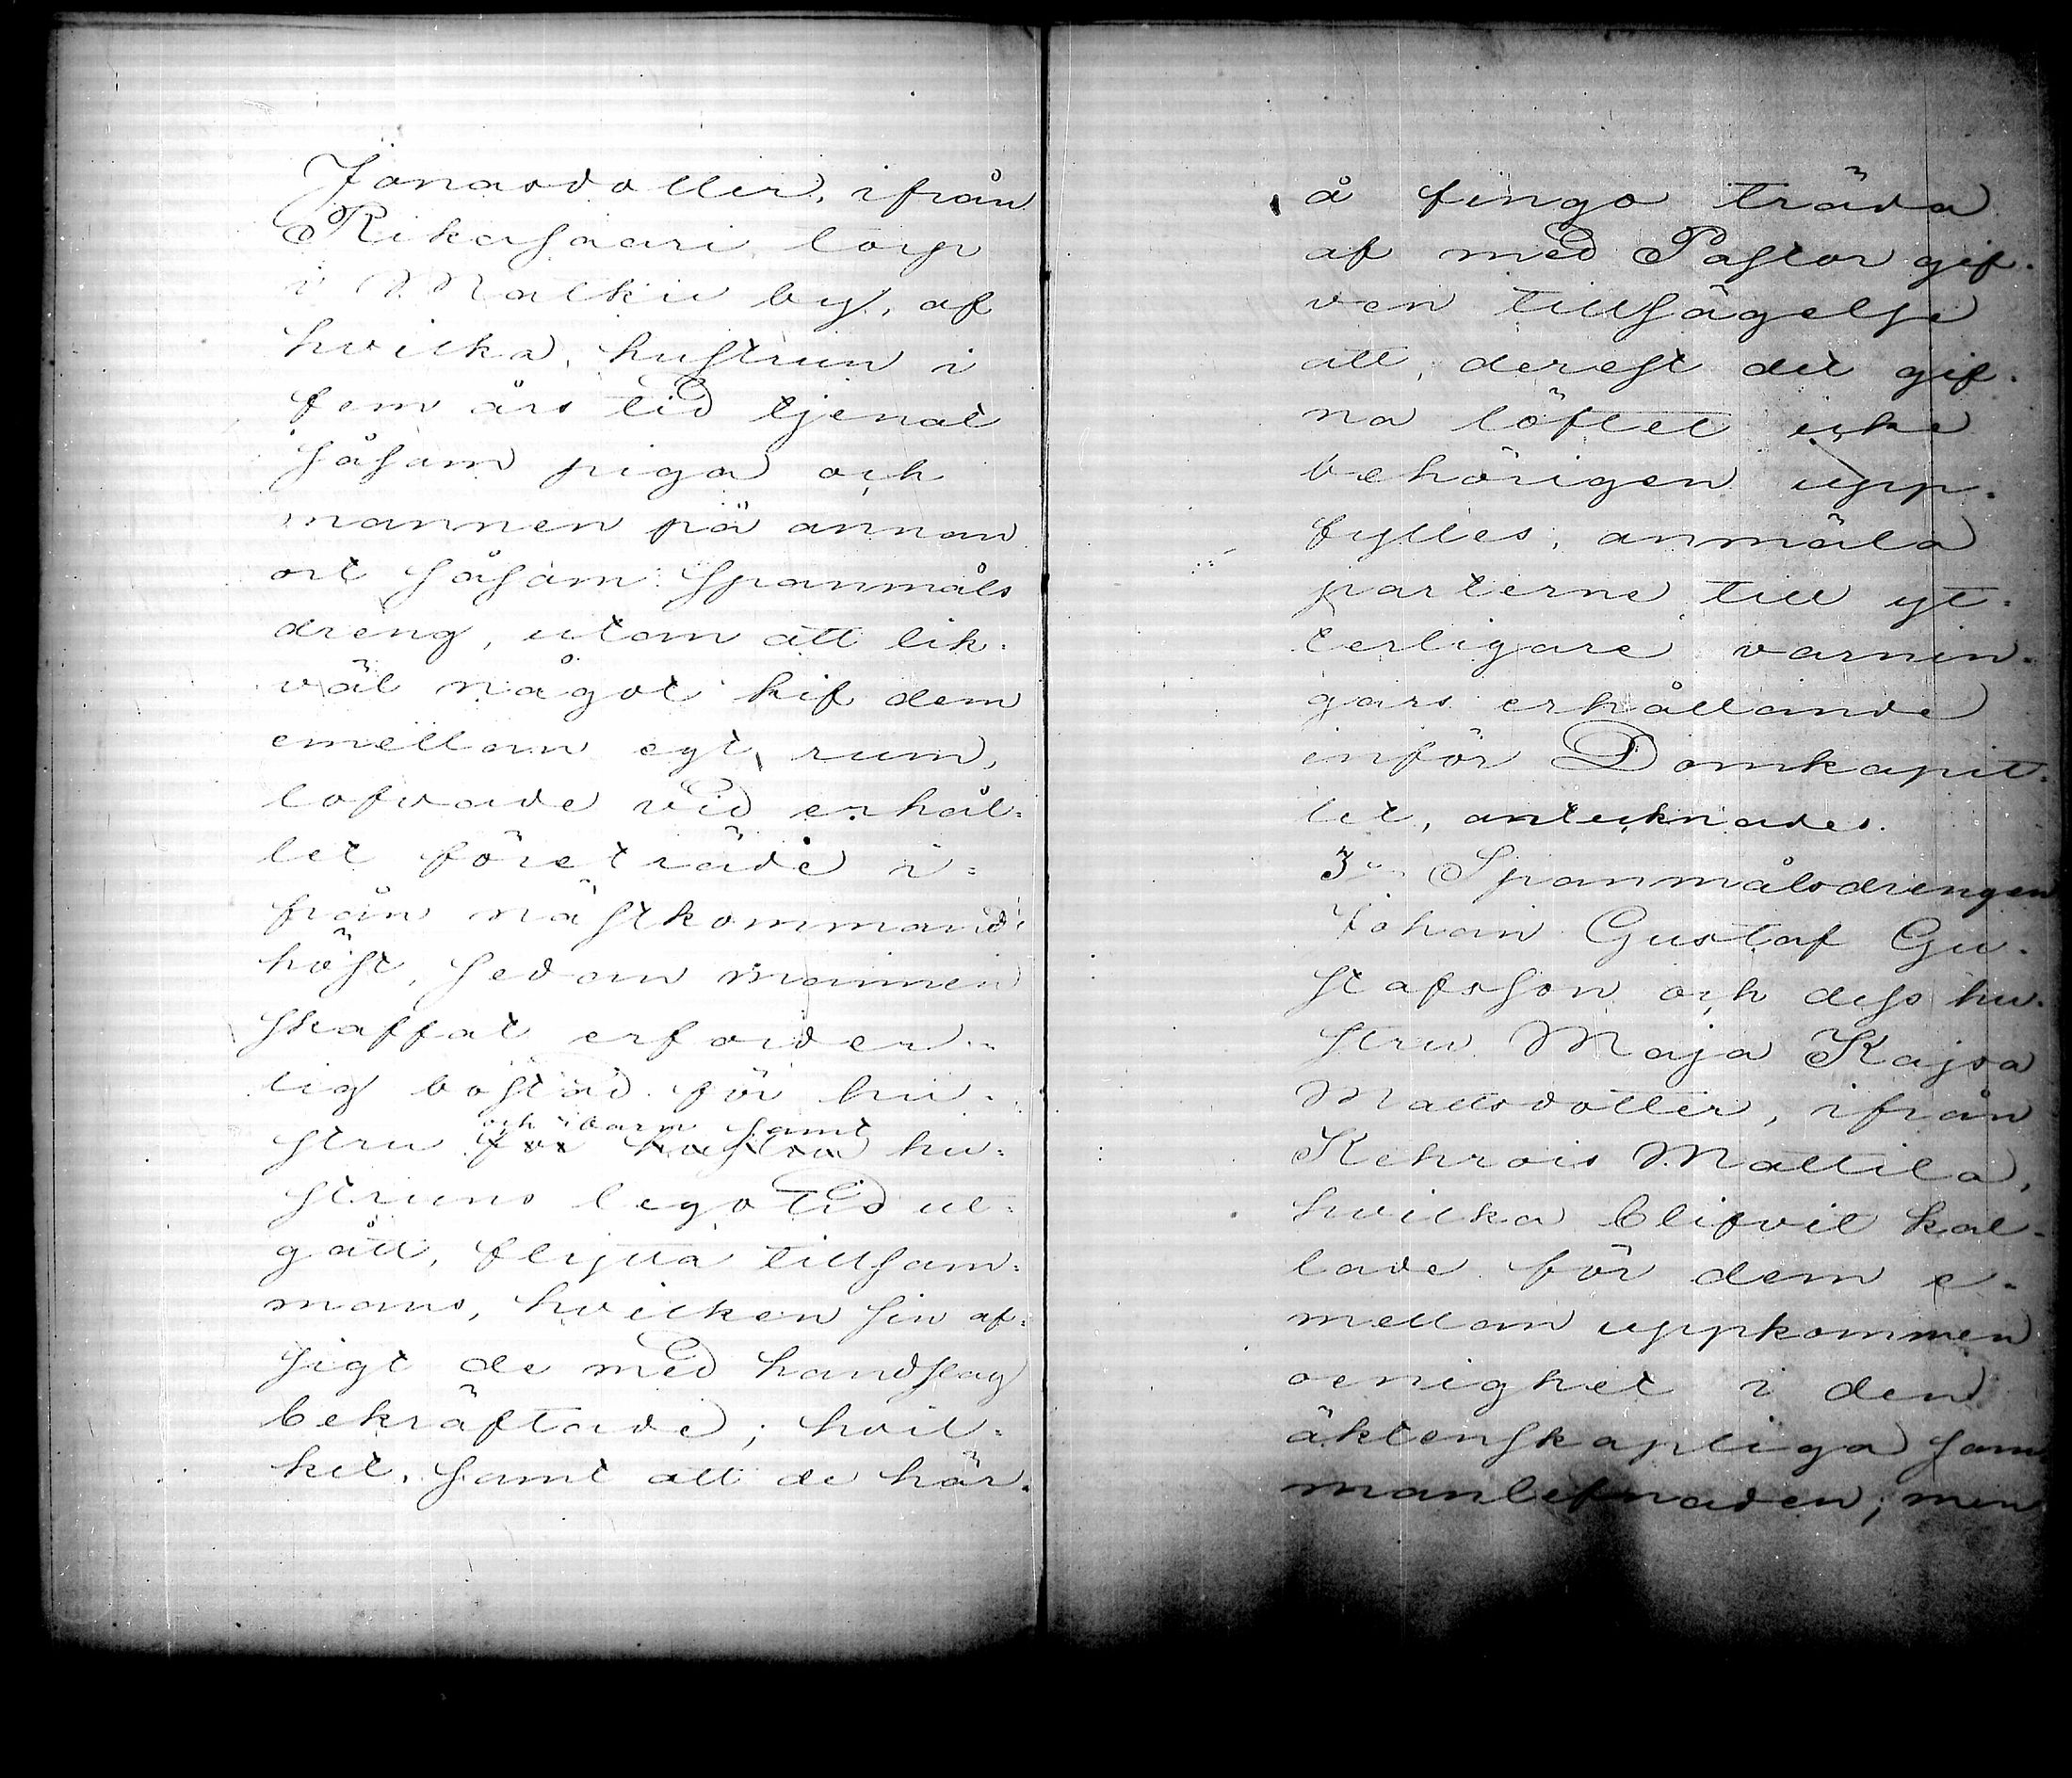 Jonasdotter, ifrån
Rikasaari torp
i Matkü by, af
hvilka, hustrun i
fem års tid tjenat
såsom piga och
mannen på annan
ort såsom Spanmåls
dreng, utom att lik-
väl något kif dem
emellan egt rum,
lofvade vid erhål-
let företräde i-
från nästkommande
höst, sedan mannen
skaffat erforder-
lig bostad för hu-
och barn samt
stru för hustru hu-
struns legotid ut-
gått, flytta tillsam-
mans, hvilken sin af-
sigt de med handslag
bekräftade; hvil-
ket, samt att de här-
å fingo träda
af med Pastor gif-
ven tillsägelse
att, derest det gif-
na löftet icke
behörigen upp-
fylles, anmäla
parterne till yt-
terligare varnin-
gars erhållande
inför Domkapit-
let, antecknades.
3o Spanmålsdrengen
Johan Gustaf Gu-
stafsson och dess hu-
stru Maja Kajsa
Mattsdotter, ifrån
Kehrois Mattila,
hvilka blifvit kal-
lade för dem e-
mellan uppkommen
oenighet i den
äktenskapliga sam-
manlefnaden; men